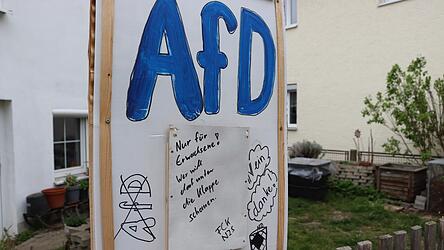 AfD
• Nur für
Erwachsene!
Wer will
• darf unter
die Klappe
schauen.
FCK
NZS
Nein
danke!
AfD